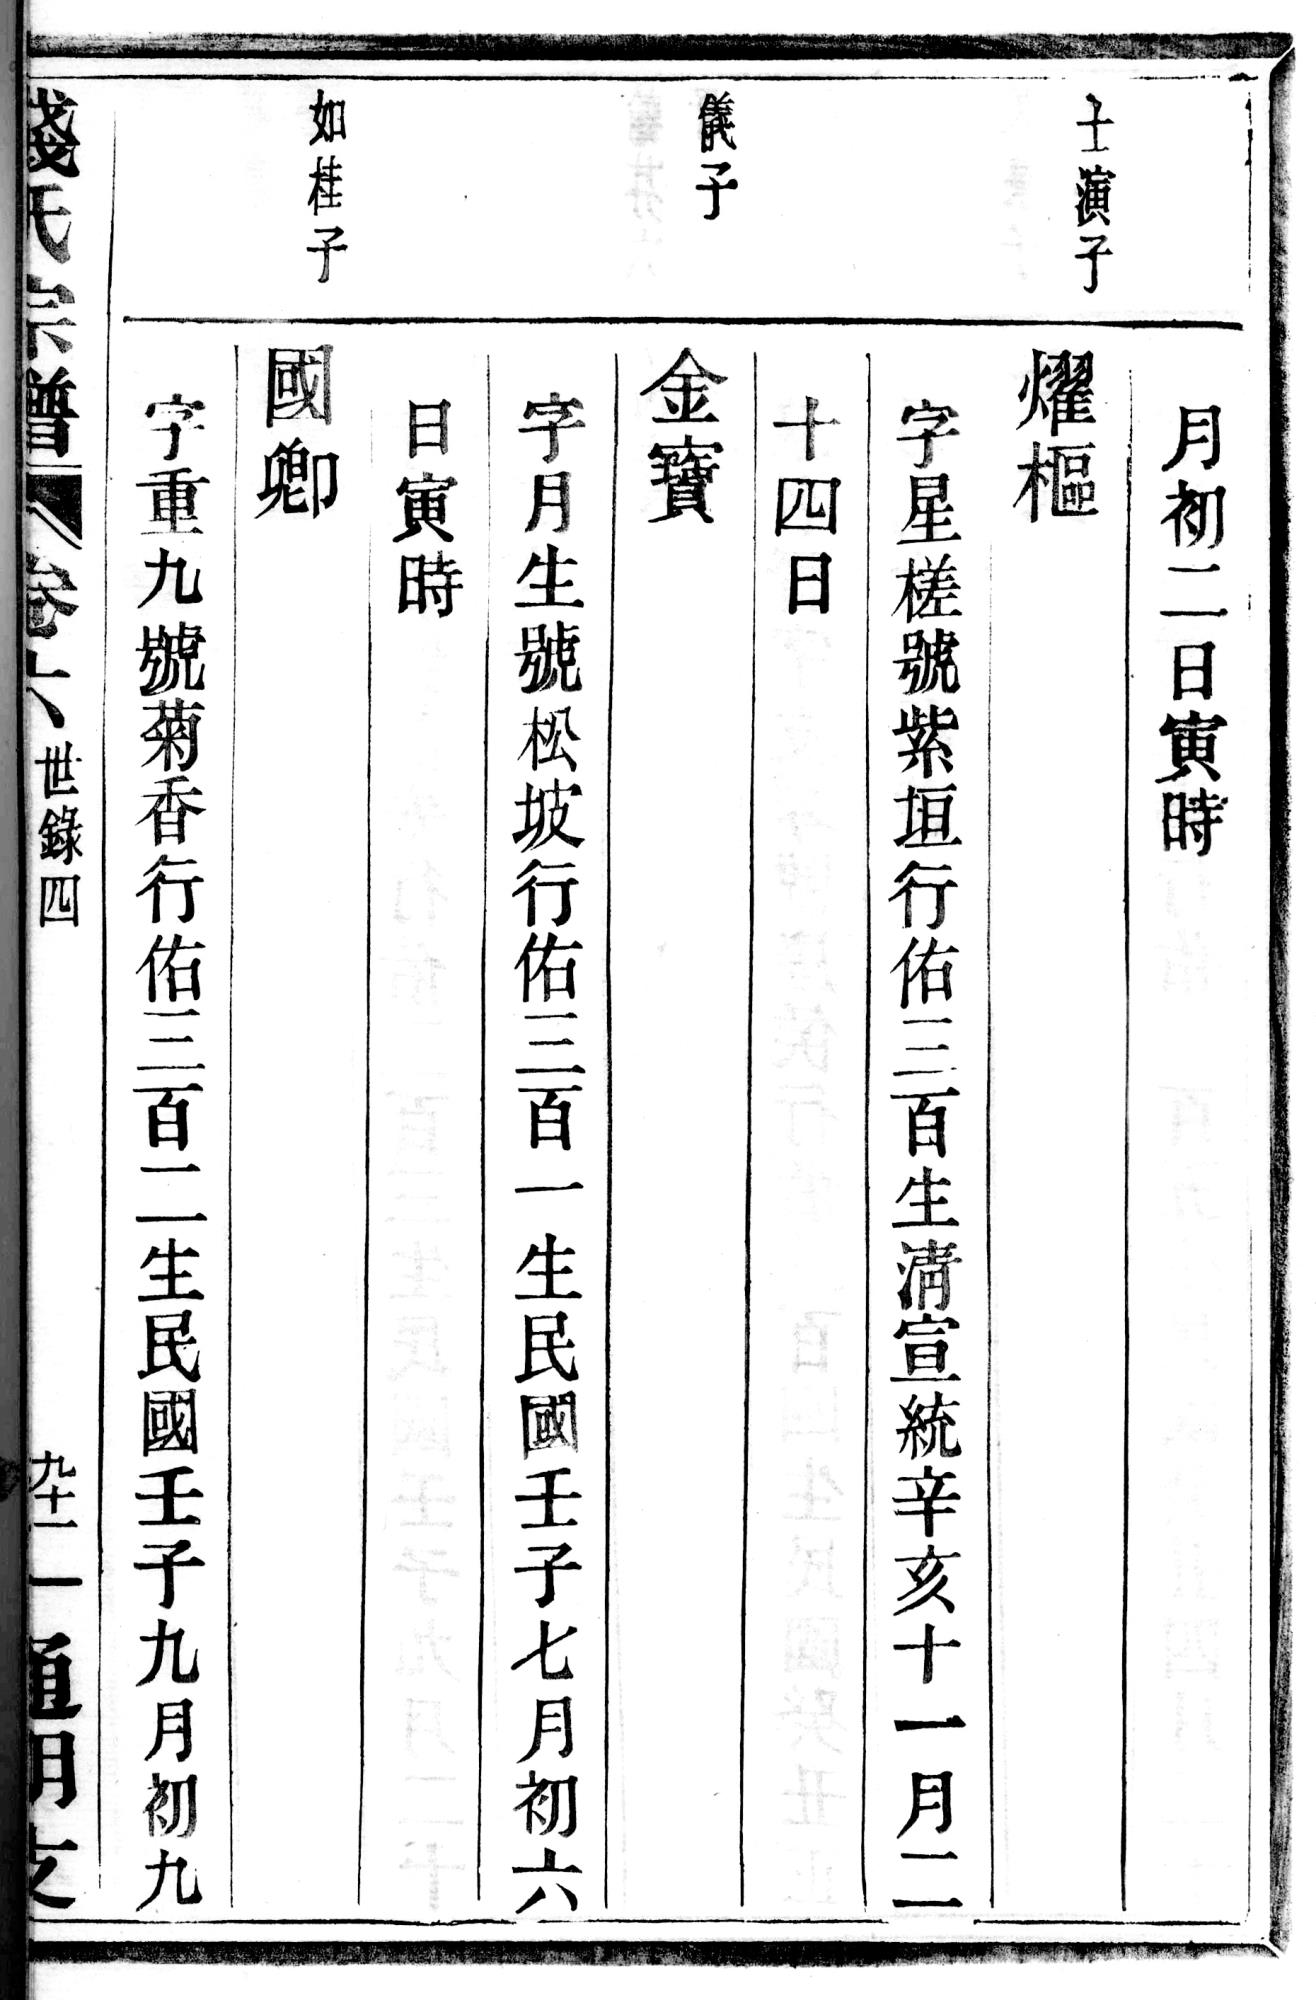 月初二日寅時
士演子
燿樞
字星槎號紫垣行佑三百生淸宣統辛亥十一月二
十四日
儀子
金寶
字月生號松坡行佑三百一生民國壬子七月初六
日寅時
如桂子
國卿
字重九號菊香行佑三百二生民國壬子九月初九
錢氏宗譜
卷六
世錄四
九十二
通明支